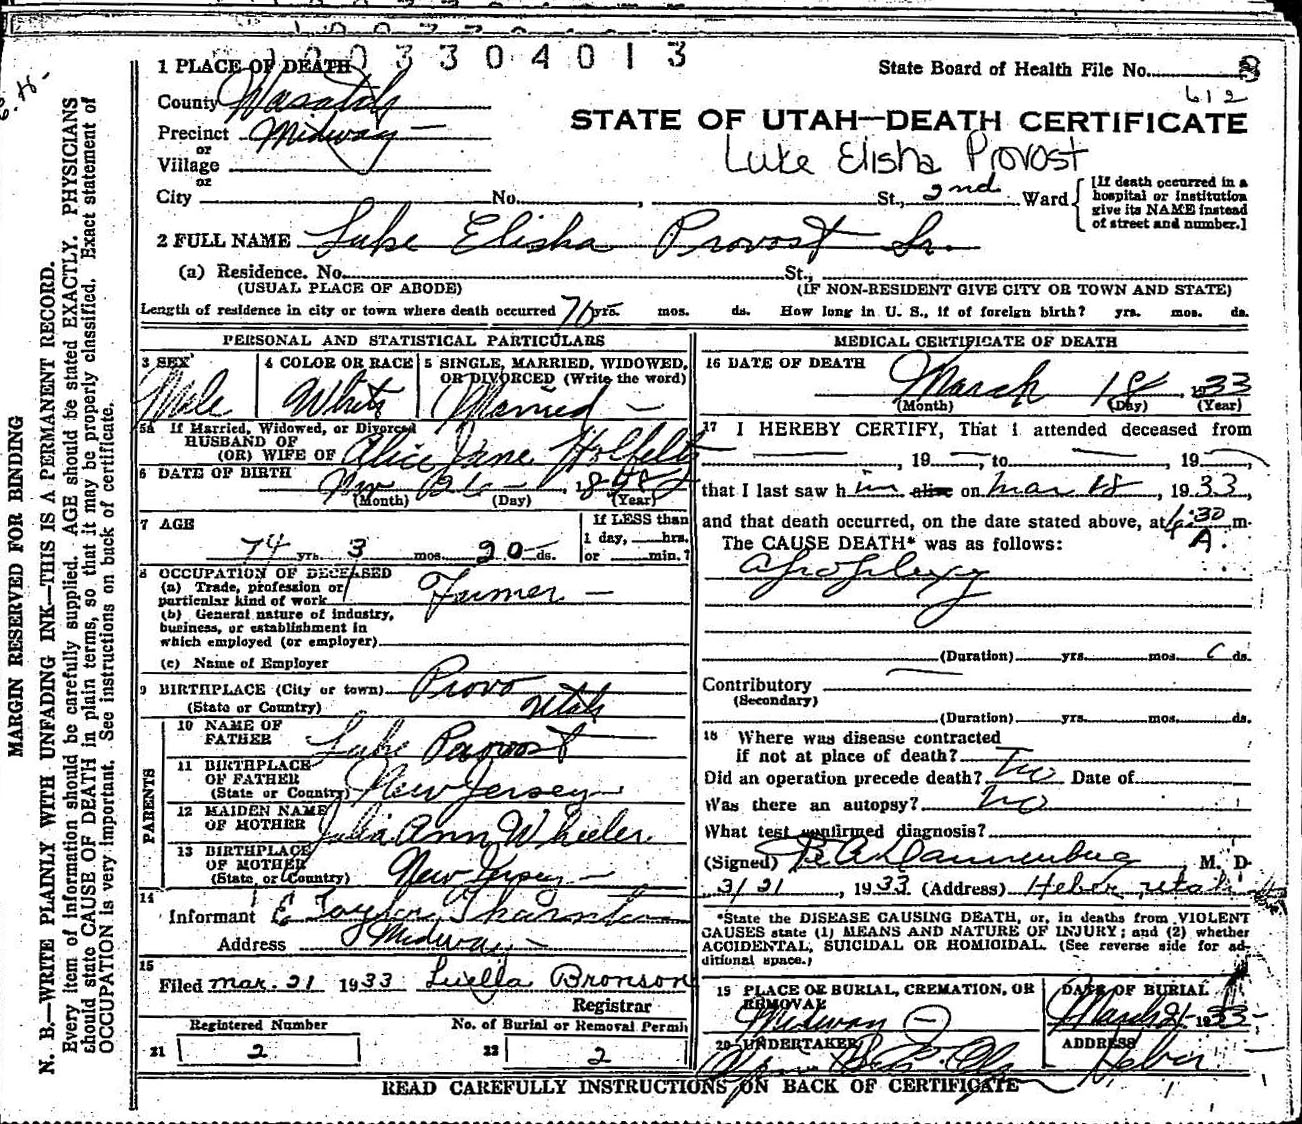 03304013
1 PLACE OF DEATH
State Board of Health File No. 3
612
County Wasatch
Precinct Midway
or
Village
or
City No. , St., 2nd Ward
STATE OF UTAH—DEATH CERTIFICATE
Luke Elisha Provost
[If death occurred in a hospital or institution give its NAME instead of street and number.]
2 FULL NAME Luke Elisha Provost Sr.
(a) Residence. No. St.,
(USUAL PLACE OF ABODE) (IF NON-RESIDENT GIVE CITY OR TOWN AND STATE)
Length of residence in city or town where death occurred yrs. mos. ds. How long in U. S., if of foreign birth? yrs. mos. ds.
PERSONAL AND STATISTICAL PARTICULARS
3 SEX Male
4 COLOR OR RACE White
5 SINGLE, MARRIED, WIDOWED, OR DIVORCED (Write the word) Married
5a If Married, Widowed, or Divorced
HUSBAND OF
(OR) WIFE OF Alice Jane
6 DATE OF BIRTH
(Month) (Day) (Year)
7 AGE
74 yrs. 3 mos. 20 ds.
If LESS than
1 day, hrs.
or min.?
8 OCCUPATION OF DECEASED
(a) Trade, profession or
particular kind of work Farmer
(b) General nature of industry,
business, or establishment in
which employed (or employer)
(c) Name of Employer
9 BIRTHPLACE (City or town) Provo
(State or Country) Utah
PARENTS
10 NAME OF
FATHER Luke Provost
11 BIRTHPLACE
OF FATHER
(State or Country) New Jersey
12 MAIDEN NAME
OF MOTHER Julia Ann Wheeler
13 BIRTHPLACE
OF MOTHER
(State or Country) New Jersey
14
Informant E Taylor
Address Midway
15
Filed Mar. 21 1933 Luella Bronson
Registrar
Registered Number
21 2
No. of Burial or Removal Permit
22 2
MEDICAL CERTIFICATE OF DEATH
16 DATE OF DEATH
March 18 1933
(Month) (Day) (Year)
17 I HEREBY CERTIFY, That I attended deceased from
, 19 , to , 19 ,
that I last saw him alive on Mar 18, 1933,
and that death occurred, on the date stated above, at :30 A. m.
The CAUSE DEATH* was as follows:
Apoplexy
(Duration) yrs. mos. ds.
Contributory
(Secondary)
(Duration) yrs. mos. ds.
18 Where was disease contracted
if not at place of death?
Did an operation precede death? No Date of
Was there an autopsy? No
What test confirmed diagnosis?
(Signed) Dannenberg, M. D.
3/21, 1933 (Address) Heber, Utah
*State the DISEASE CAUSING DEATH, or, in deaths from VIOLENT
CAUSES state (1) MEANS AND NATURE OF INJURY; and (2) whether
ACCIDENTAL, SUICIDAL OR HOMICIDAL. (See reverse side for ad-
ditional space.)
19 PLACE OF BURIAL, CREMATION, OR
REMOVAL
Midway
DATE OF BURIAL
March 21 1933
20 UNDERTAKER
ADDRESS
Heber
READ CAREFULLY INSTRUCTIONS ON BACK OF CERTIFICATE
MARGIN RESERVED FOR BINDING
N. B.—WRITE PLAINLY WITH UNFADING INK—THIS IS A PERMANENT RECORD.
Every item of information should be carefully supplied. AGE should be stated EXACTLY. PHYSICIANS
should state CAUSE OF DEATH in plain terms, so that it may be properly classified. Exact statement of
OCCUPATION is very important. See instructions on back of certificate.